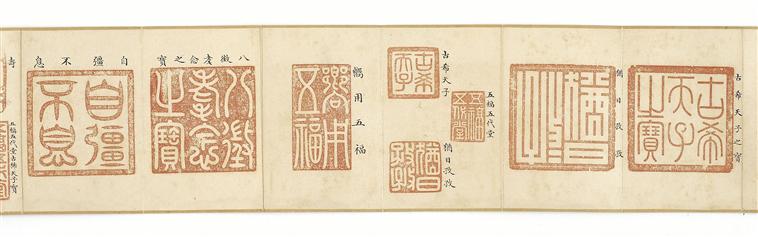 古希天子之寶
古希
天子
之寶
猶日孜孜
猶日
孜孜
五福五代堂
五福
五代堂
古希天子
古希
天子
猶日孜孜
猶日
孜孜
嚮用五福
嚮用
五福
八徵耄念之寶
八徵
耄念
之寶
自彊不息
自彊
不息
五福五代堂古稀天子寶